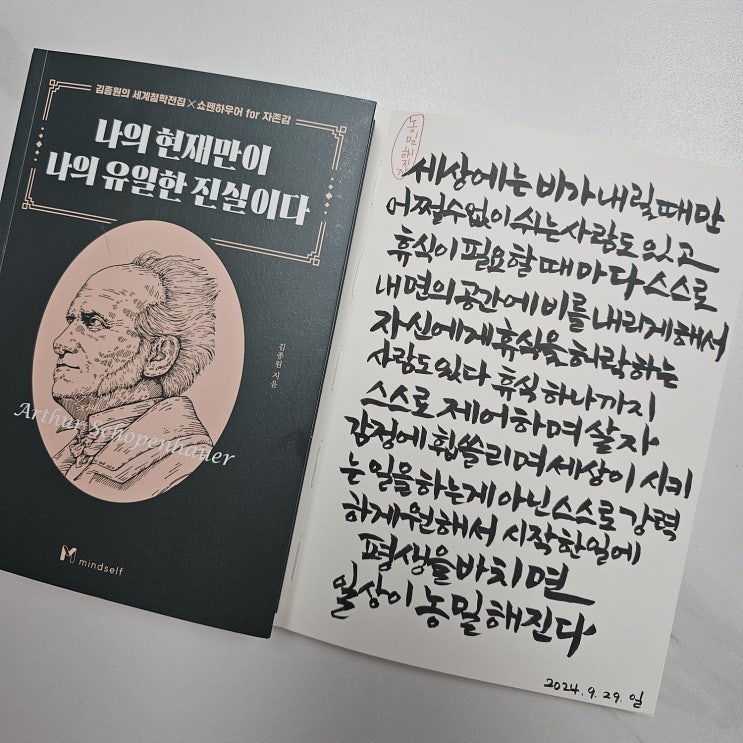 김종원의 세계철학전집 × 쇼펜하우어 for 자존감
나의 현재만이
나의 유일한 진실이다
김종원 지음
Arthur Schopenhauer
mindself
농밀해지기
세상에는 비가 내릴 때만
어쩔수없이 쉬는 사람도 있고
휴식이 필요할 때마다 스스로
내면의 공간에 비를 내리게 해서
자신에게 휴식을 허락하는
사람도 있다 휴식 하나까지
스스로 제어하며 살자
감정에 휩쓸리며 세상이 시키
는 일을 하는게 아닌 스스로 강력
하게 원해서 시작한 일에
평생을 바치면
일상이 농밀해진다
2024. 9. 29. 일